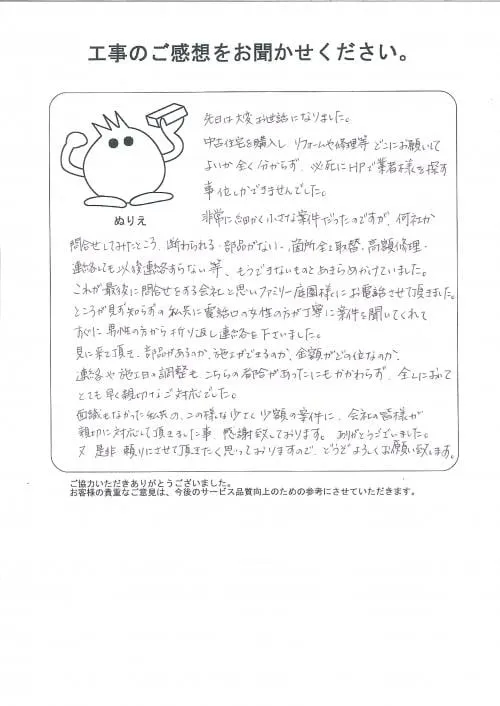 工事のご感想をお聞かせください。
先日は大変お世話になりました。
中古住宅を購入し、リフォームや修理等どこにお願いして
よいか全く分からず、必死にHPで業者様を探す
事位しかできませんでした。
ぬりえ
非常に細かく小さな案件だったのですが、何社か
問合せしてみたところ、断わられる・部品がない・箇所全て取替・高額修理・
連絡しても以後連絡すらない等、もうできないものとあきらめかけていました。
これが最後に問合せをする会社と思いファミリー庭園様にお電話させて頂きました。
ところが見ず知らずの私共に電話口の女性の方が丁寧に案件を聞いてくれて
すぐに男性の方から折り返し連絡を下さいました。
見に来て頂き、部品があるのか、施工ができるのか、金額がどの位なのか、
連絡や施工日の調整も、こちらの都合があったにもかかわらず、全てにおいて
とても早く親切なご対応でした。
面識もなかった私共の、この様な少なく少額の案件に、会社の皆様が
親切に対応して頂きました事、感謝致しております。ありがとうございました。
又、是非頼りにさせて頂きたく思っておりますので、どうぞよろしくお願い致します。
ご協力いただきありがとうございました。
お客様の貴重なご意見は、今後のサービス品質向上のための参考にさせていただきます。